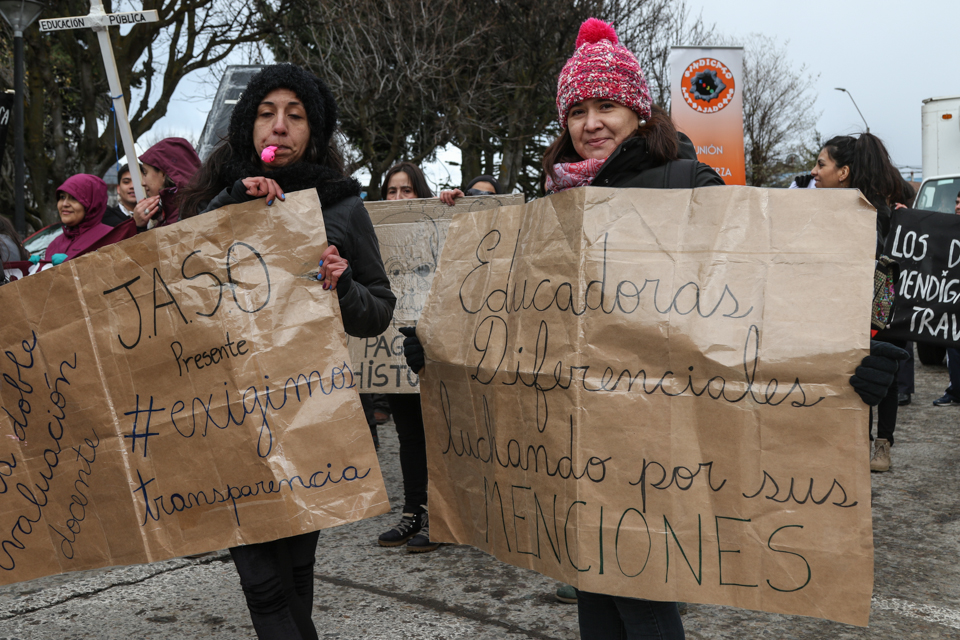 EDUCACIÓN PÚBLICA
J.A.SO
Presente
#exigimos
transparencia
doble
evaluación
docente
PAG
HISTO
Educadoras
Diferenciales
luchando por sus
MENCIONES
LOS D
MENDIG
TRAV